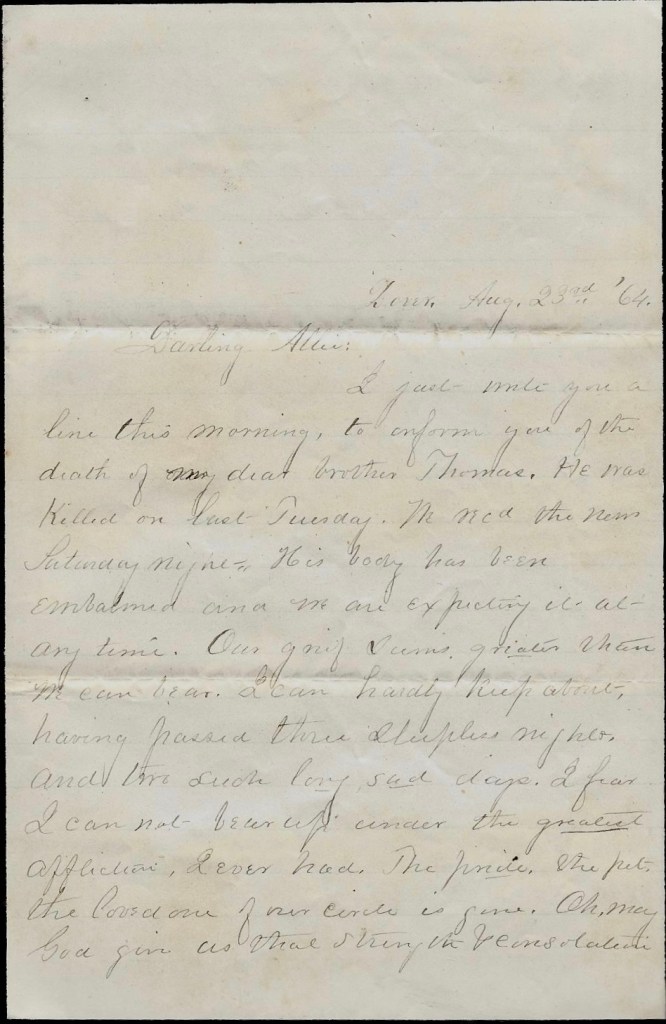 Aug. 23rd. '64.
Darling Allie:
I just write you a
line this morning, to inform you of the
death of my dear brother Thomas. He was
Killed on last Tuesday. We recd the news
Saturday night. His body has been
embalmed and we are expecting it at
any time. Our grief seems greater than
we can bear. I can hardly keep about,
having passed three sleepless nights,
and two such long, sad days. I fear
I can not bear up under the greatest
affliction, I ever had. The pride, the pet,
the loved one of our circle is gone. Oh, may
God give us that strength & consolation